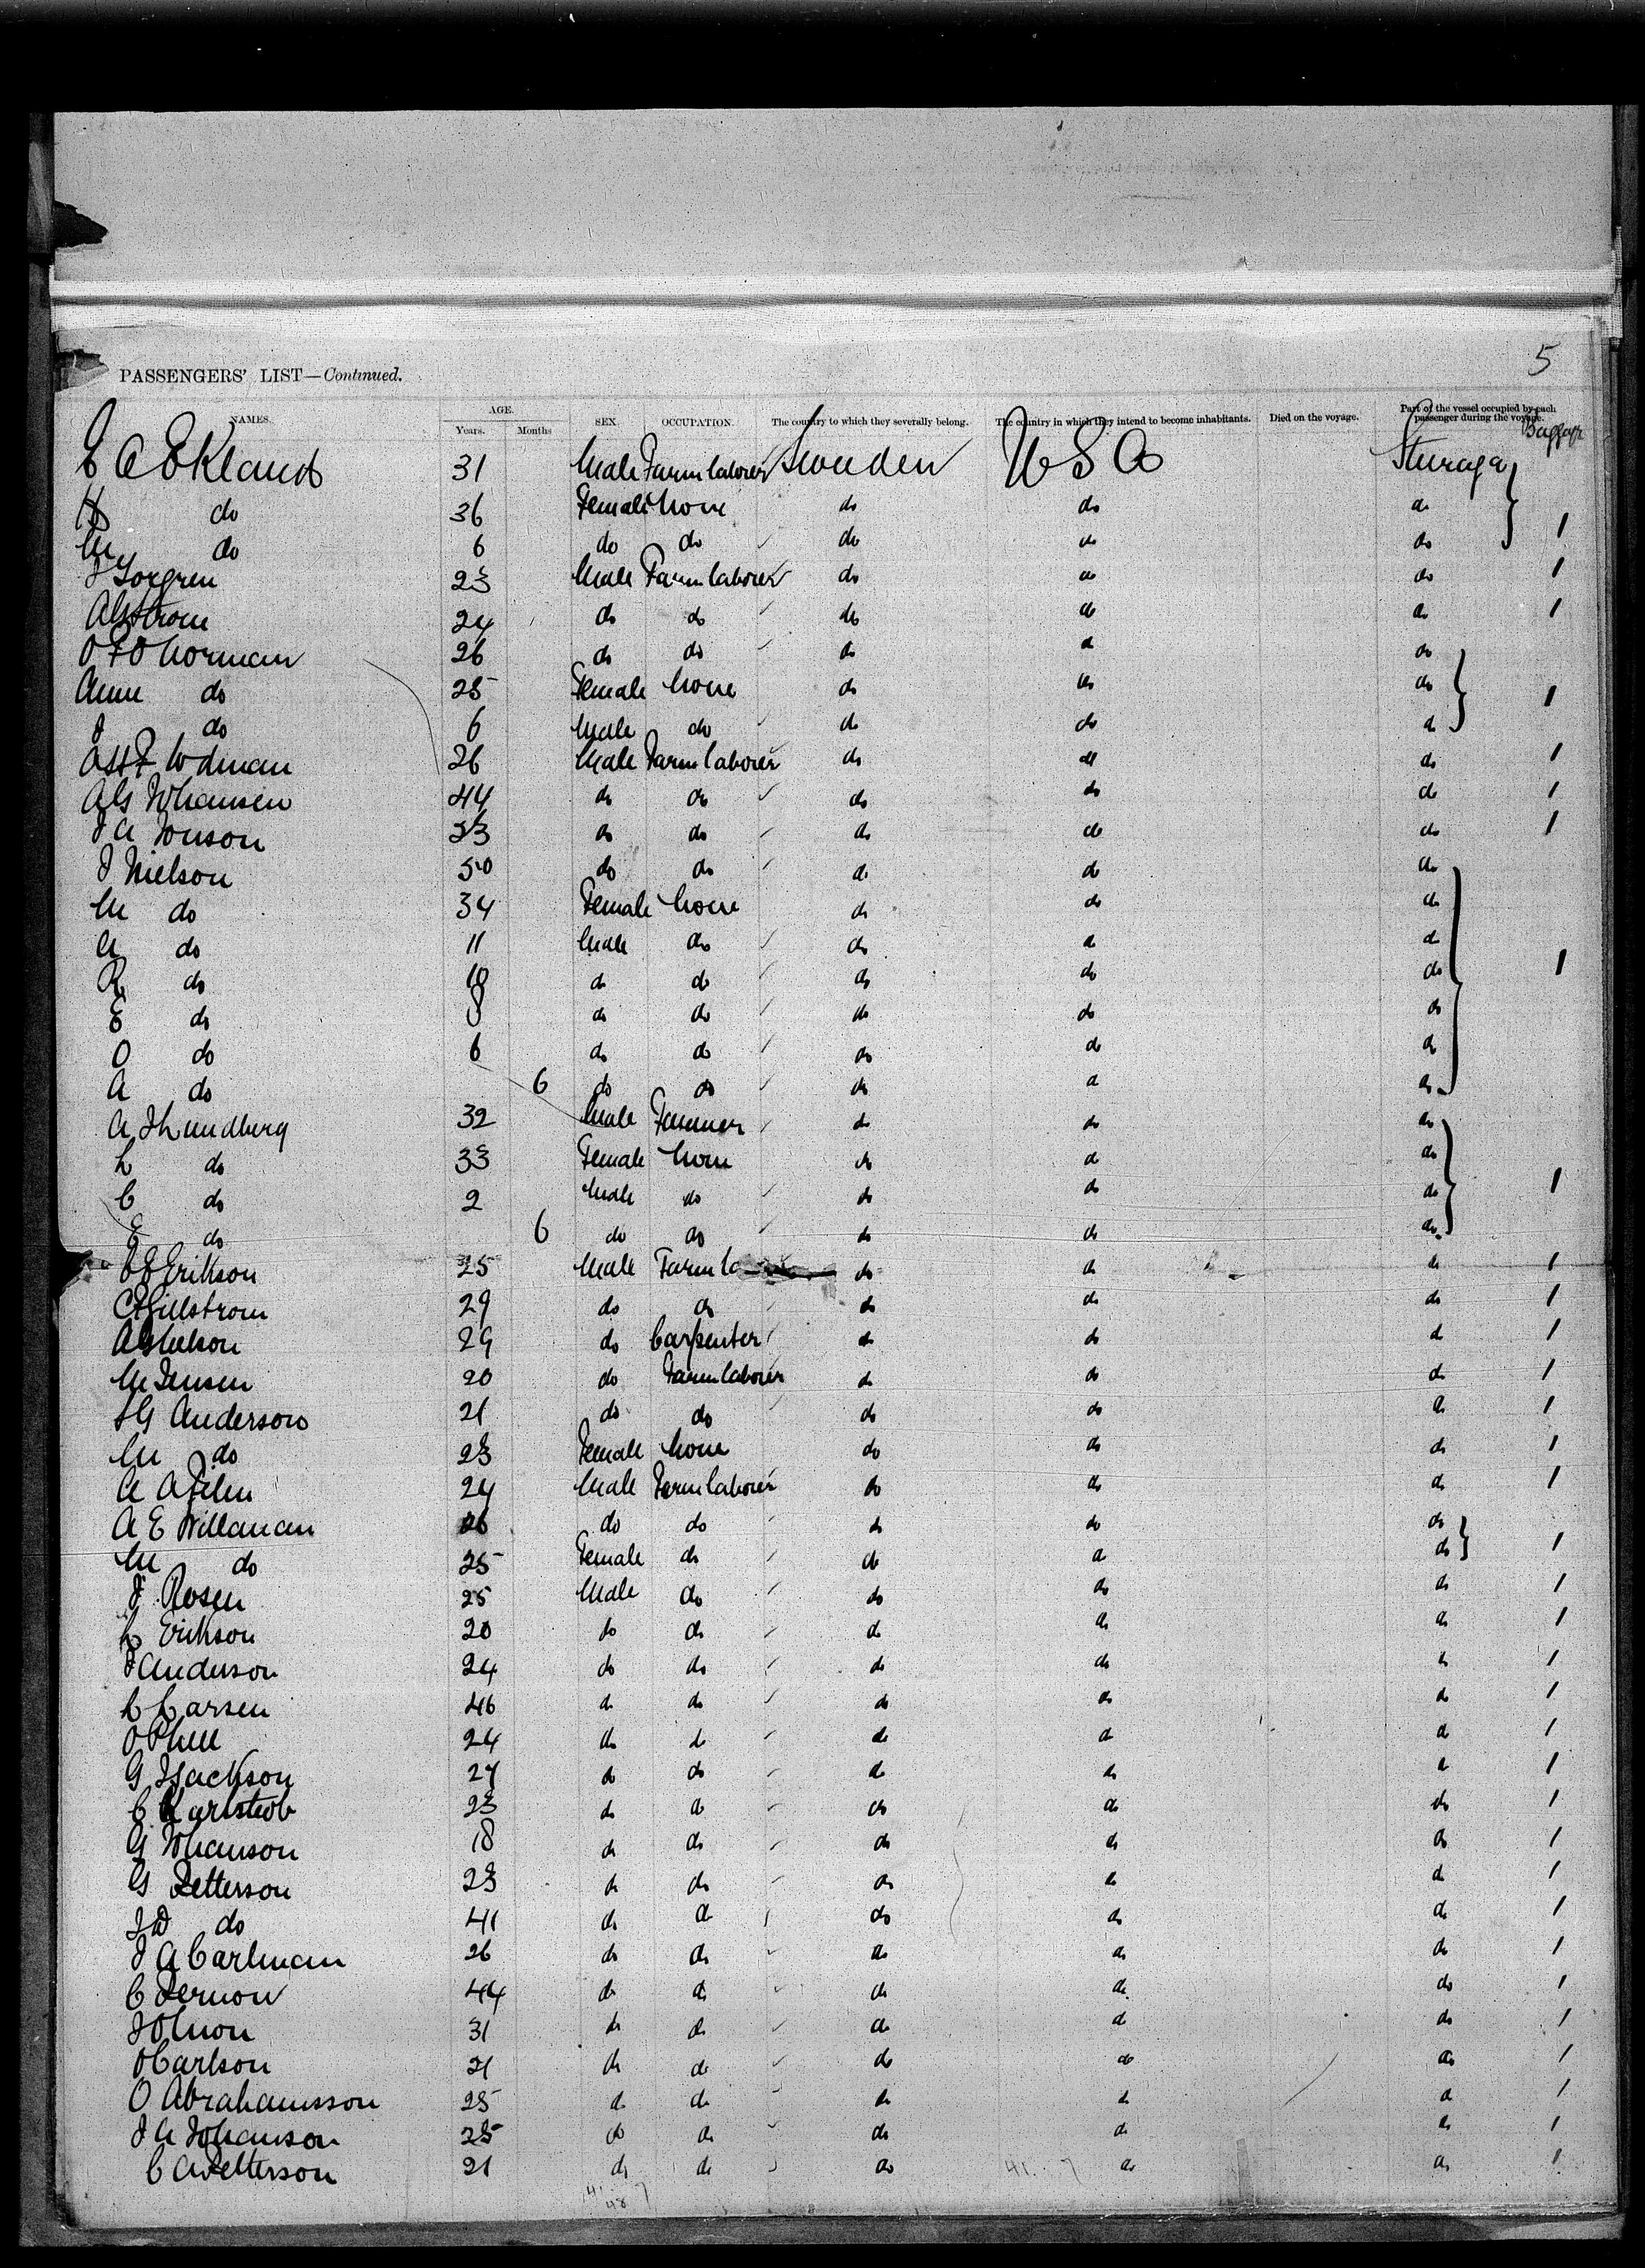 5
PASSENGERS' LIST—Continued.
NAMES. AGE. Years. Months SEX. OCCUPATION. The country to which they severally belong. The country in which they intend to become inhabitants. Died on the voyage. Part of the vessel occupied by each passenger during the voyage. Baggage
C A Eklund 31 Male Farm laborer Sweden U S A Steerage
H do 36 Female None do do do
M do 6 do do do do do 1
23 Male Farm laborer do do do 1
Alstrom 24 do do do do do 1
O F O Norman 26 do do do do do
Anne do 25 Female None do do do 1
J do 6 Male do do do do
26 Male Farm laborer do do do 1
A G Johansen 44 do do do do do 1
J A Jonson do do do do do 1
J Nielson 50 do do do do do
M do 34 Female None do do do
A do 11 Male do do do do
R do 10 do do do do do 1
E do 8 do do do do do
O do 6 do do do do do
A do 6 do do do do do
A J Lundberg 32 Male Farmer do do do
L do 33 Female None do do do
C do 2 Male do do do do 1
E do 6 do do do do do
Erikson 25 Male Farm la do do do 1
C Gillstrom 29 do do do do do 1
A G Nelson 29 do Carpenter do do do 1
M Jensen 20 do Farm laborer do do do 1
Anderson 21 do do do do do 1
M do 23 Female None do do do 1
A 24 Male Farm laborer do do do 1
A E Willaman 26 do do do do do
M do 25 Female do do do do 1
J Rosen 25 Male do do do do 1
L Erikson 20 do do do do do 1
J Anderson 24 do do do do do 1
C Larsen 46 do do do do do 1
24 do do do do do 1
G Isackson 27 do do do do do 1
C 23 do do do do do 1
G Johanson 18 do do do do do 1
G Petterson 23 do do do do do 1
do 41 do do do do do 1
J A Carlman 26 do do do do do 1
C 44 do do do do do 1
31 do do do do do 1
O Carlson 21 do do do do do 1
O Abrahamsson 25 do do do do do 1
J A Johanson 25 do do do do do 1
C A Petterson 21 do do do do do 1